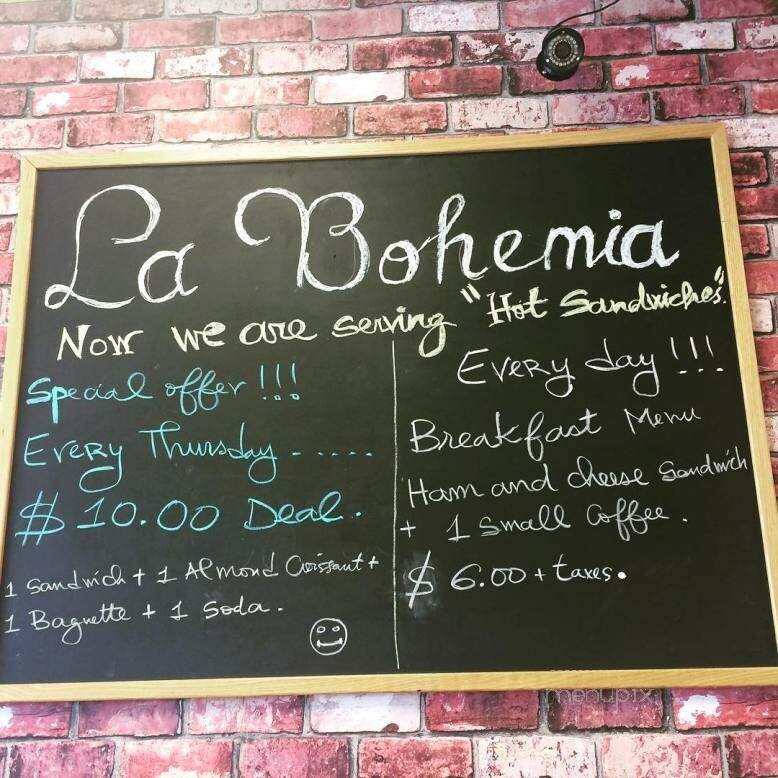 La Bohemia
Now we are serving "Hot Sandwiches".
Special offer !!!
Every Thursday ......
$ 10.00 Deal.
1 Sandwich + 1 Almond Croissant +
1 Baguette + 1 Soda.
Every day !!!
Breakfast Menu
Ham and cheese Sandwich
+ 1 Small Coffee.
$ 6.00 + taxes.
menupix